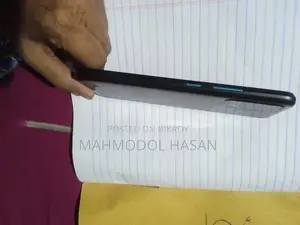 POSTED ON BIKROY
MAHMODOL HASAN